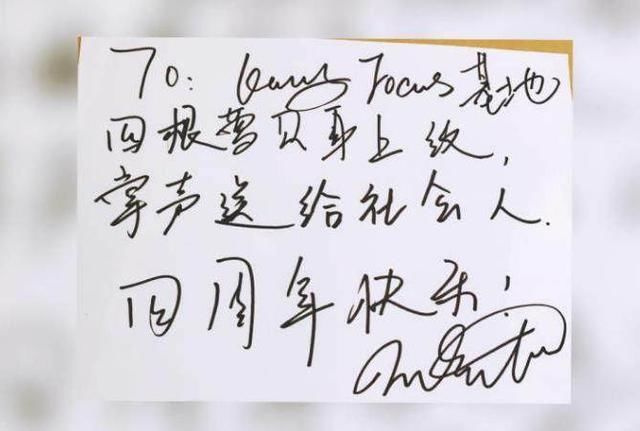 To: Focus基地
四根营只身上纹,
掌声送给社会人.
四周年快乐!